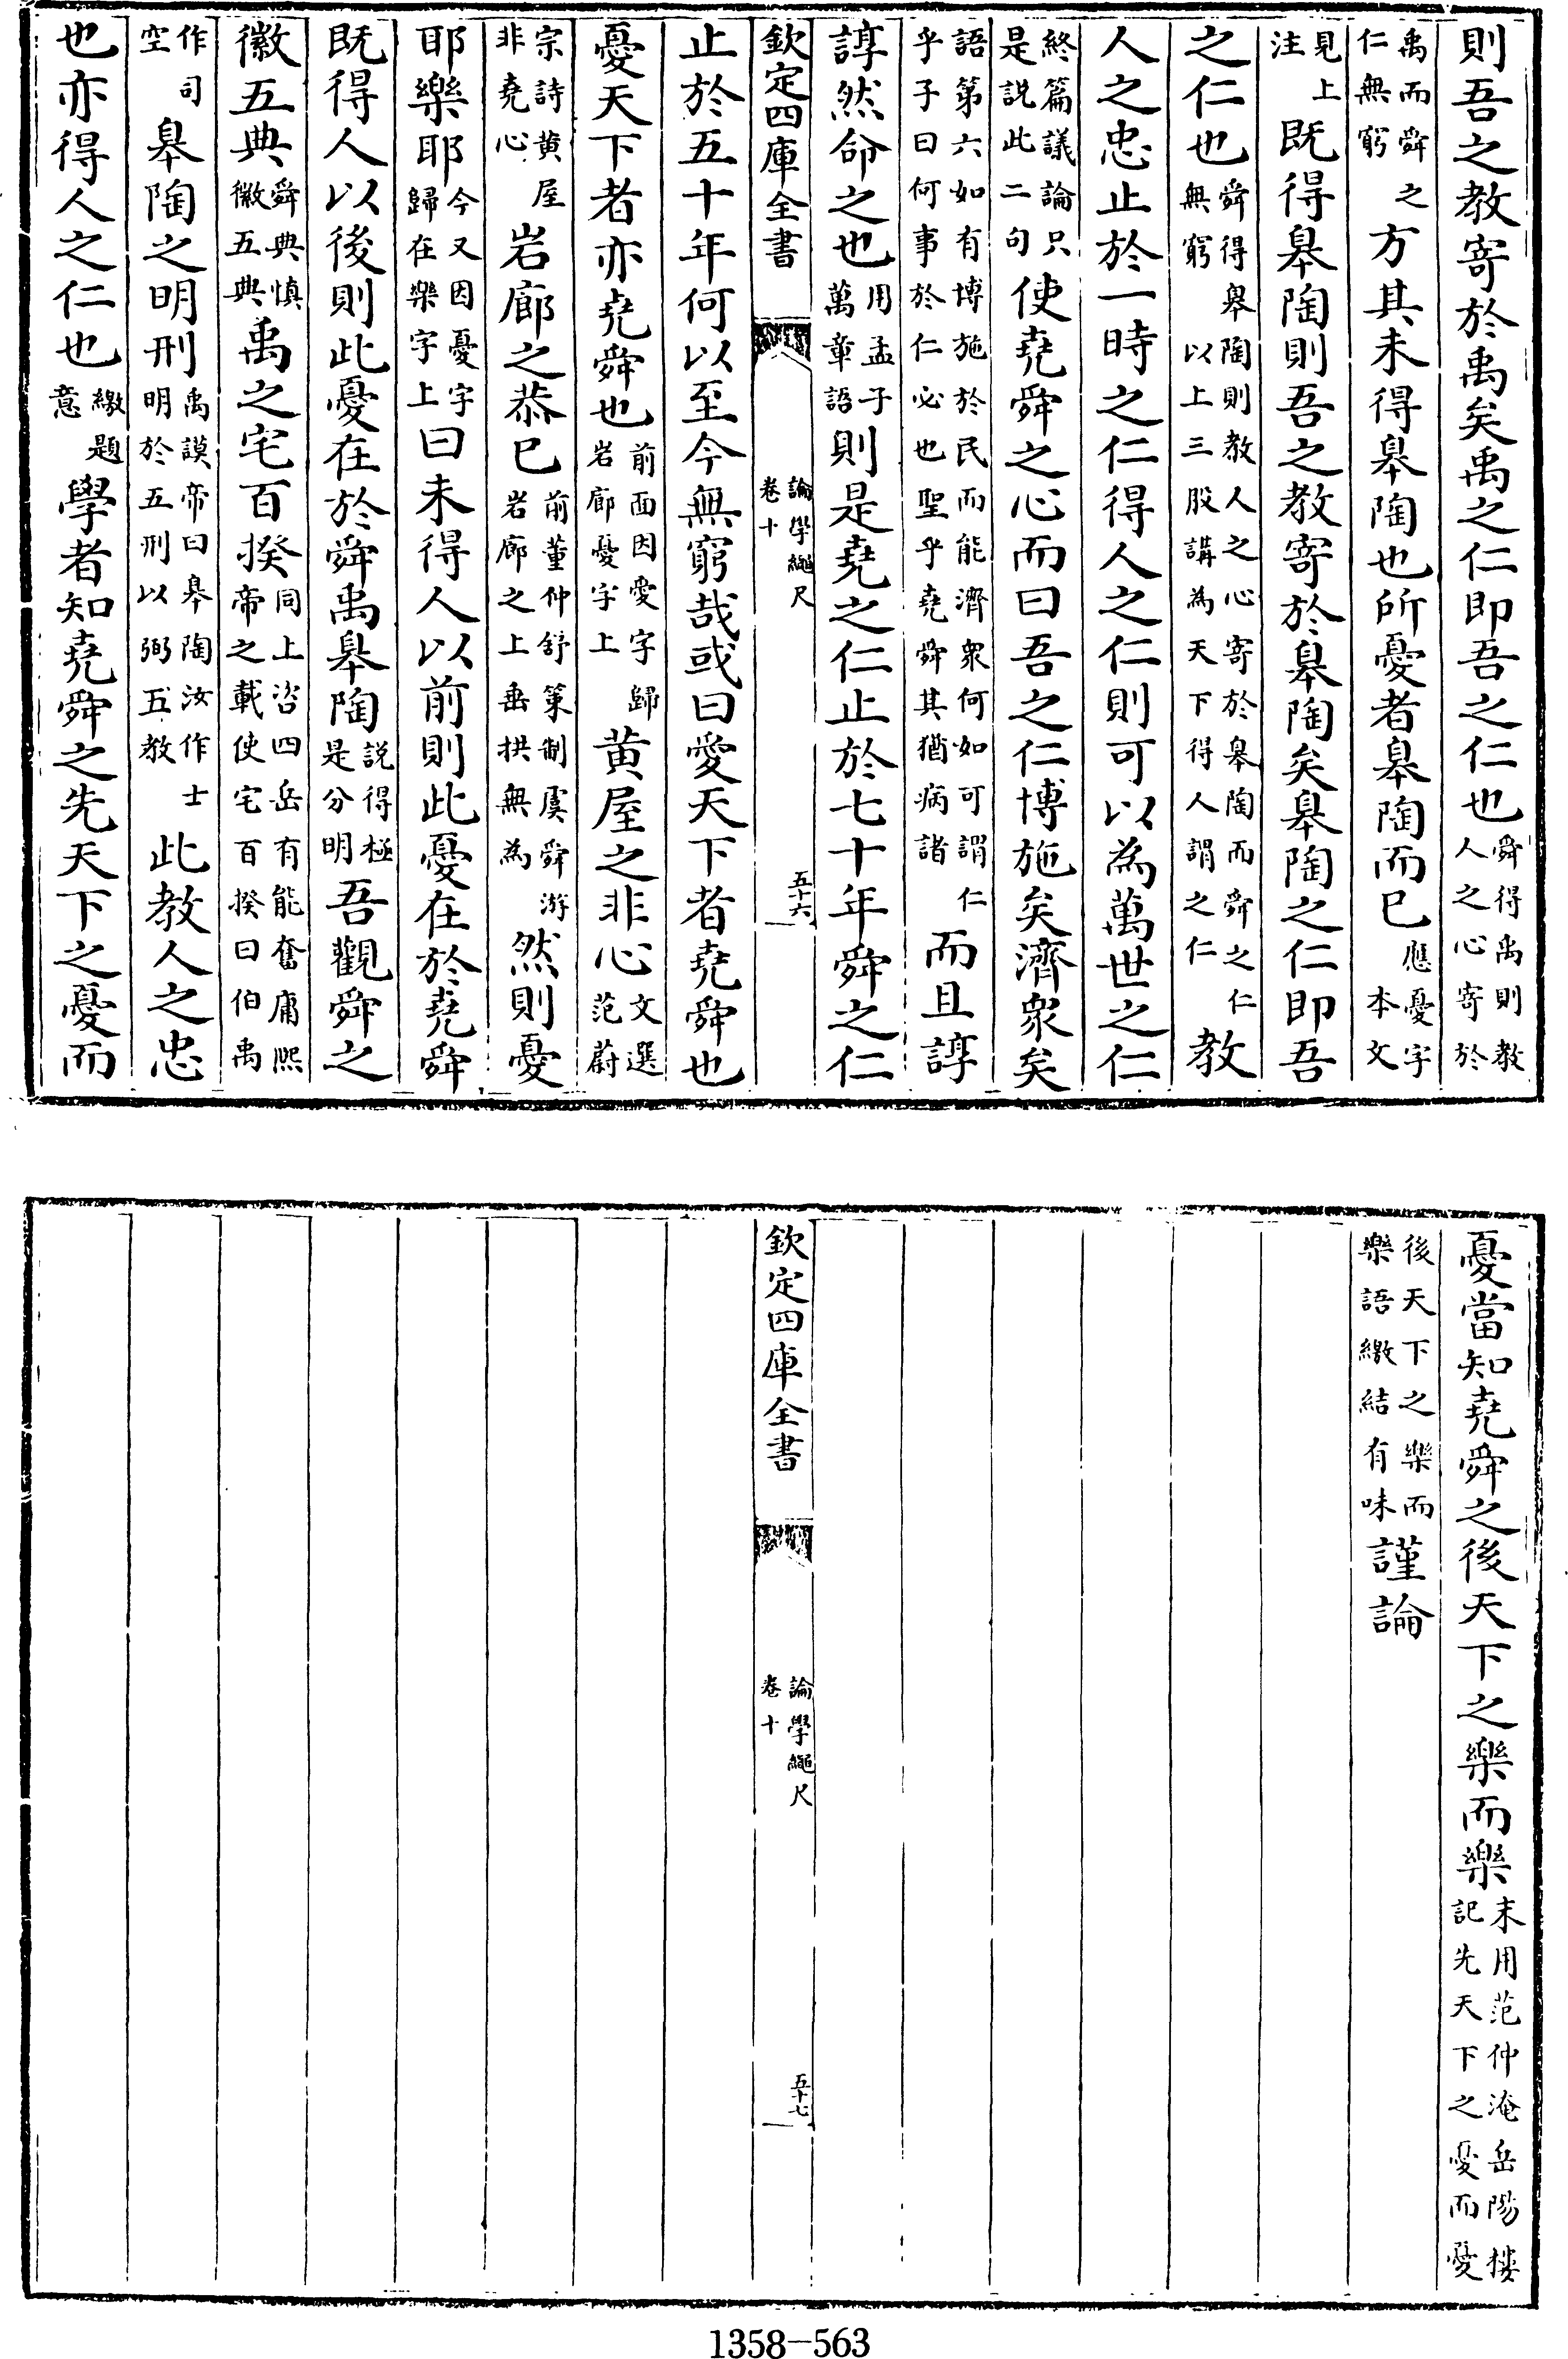 則吾之教寄於禹矣禹之仁即吾之仁也舜得禹則教人之心寄於
禹而舜之仁無窮方其未得臯陶也所憂者臯陶而已應憂字本文
見上注既得臯陶則吾之教寄於臯陶矣臯陶之仁即吾
之仁也舜得臯陶則教人之心寄於臯陶而舜之仁無窮以上三股講為天下得人謂之仁教
人之忠止於一時之仁得人之仁則可以為萬世之仁
終篇議論只是説此二句使堯舜之心而曰吾之仁博施矣濟衆矣
語第六如有博施於民而能濟衆何如可謂仁乎子曰何事於仁必也聖乎堯舜其猶病諸而且諄
諄然命之也用孟子萬章語則是堯之仁止於七十年舜之仁
欽定四庫全書
論學繩尺
卷十
五十六
止於五十年何以至今無窮哉或曰愛天下者堯舜也
憂天下者亦堯舜也前面因愛字歸岩廊憂字上黄屋之非心文選范蔚
宗詩黄屋非堯心岩廊之恭已前董仲舒策制虞舜游岩廊之上垂拱無為然則憂
耶樂耶今又因憂字歸在樂字上曰未得人以前則此憂在於堯舜
既得人以後則此憂在於舜禹臯陶説得極是分明吾觀舜之
徽五典舜典慎徽五典禹之宅百揆同上咨四岳有能奮庸熙帝之載使宅百揆曰伯禹
作司空臯陶之明刑禹謨帝曰臯陶汝作士明於五刑以弼五教此教人之忠
也亦得人之仁也繳題意學者知堯舜之先天下之憂而
憂當知堯舜之後天下之樂而樂末用范仲淹岳陽樓記先天下之憂而憂
後天下之樂而樂語繳結有味謹論
欽定四庫全書
論學繩尺
卷十
五十七
1358-563